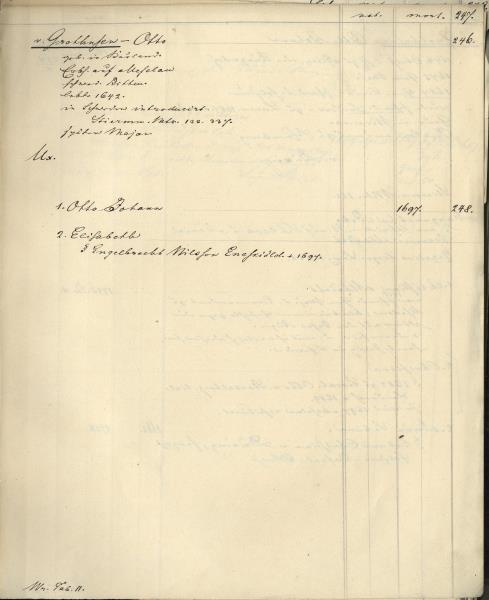 nat. mort. 247.
v. Grothusen – Otto 246.
geb. in Kurland.
Erbh. auf
schwed. Rittm.
lebte 1642.
in Schweden introducirt
Stiernm. Matr. 122. 337.
später Major
Ux.
1. Otto Johann 1697. 248.
2. Elisabeth
Engelbrecht Nilsson Eneskiöld + 1697.